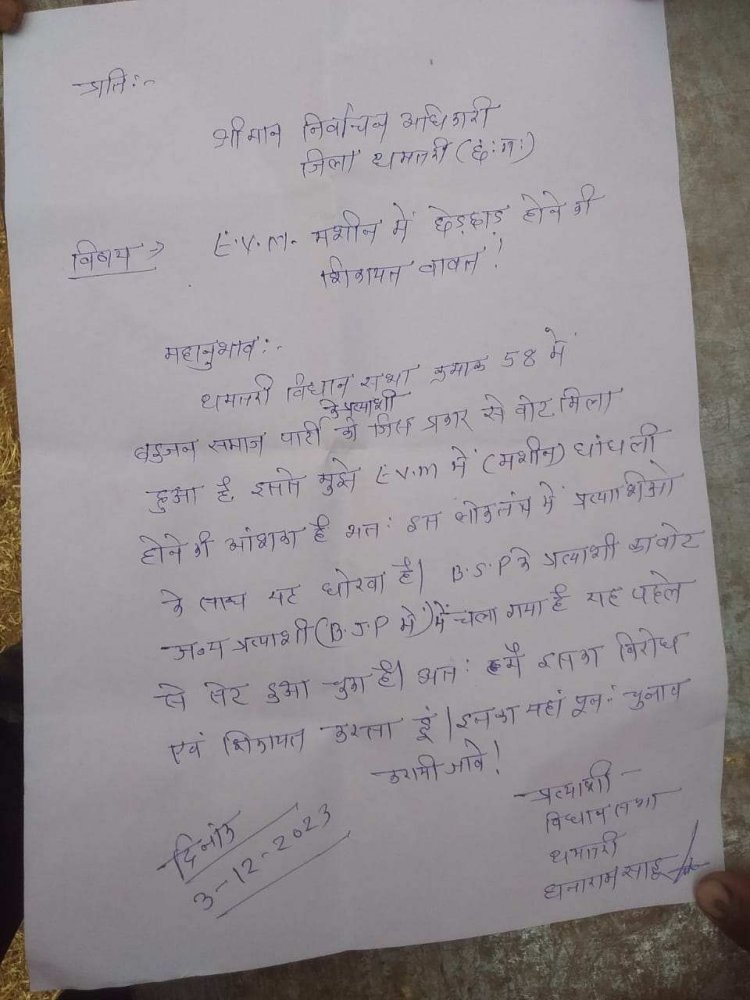 प्रति:-
श्रीमान निर्वाचन अधिकारी
जिला धमतरी (छ:ग:)
विषय → E.V.M. मशीन में छेड़छाड़ होने की
शिकायत वावत!
महानुभाव:-
धमतरी विधान सभा क्रमांक 58 में
के प्रत्याशी
बहुजन समाज पार्टी को जिस प्रकार से वोट मिला
हुआ है, इससे मुझे E.V.M में (मशीन) धांधली
होने की आंशका है अत: इस लोकतंत्र में प्रत्याशिओ
के साथ यह धोखा है| B.S.P के प्रत्याशी का वोट
अन्य प्रत्याशी (B.J.P में) में चला गया है यह पहले
से सेट हुआ चुका है| अत: मै इसका विरोध
एवं शिकायत करता हूं| इसका यहां पून: चुनाव
करायी जावे!
प्रत्याशी
विधान सभा
धमतरी
धनाराम साहू
दिनांक
3-12-2023